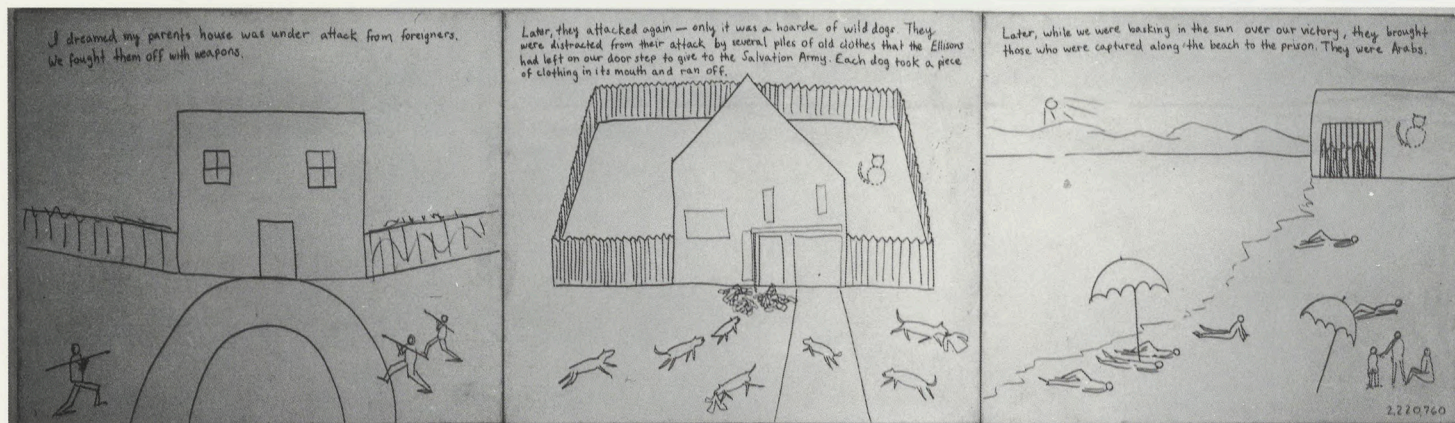 I dreamed my parents house was under attack from foreigners.
We fought them off with weapons.
Later, they attacked again — only it was a hoarde of wild dogs. They
were distracted from their attack by several piles of old clothes that the Ellisons
had left on our door step to give to the Salvation Army. Each dog took a piece
of clothing in its mouth and ran off.
Later, while we were basking in the sun over our victory, they brought
those who were captured along the beach to the prison. They were Arabs.
2,220,760